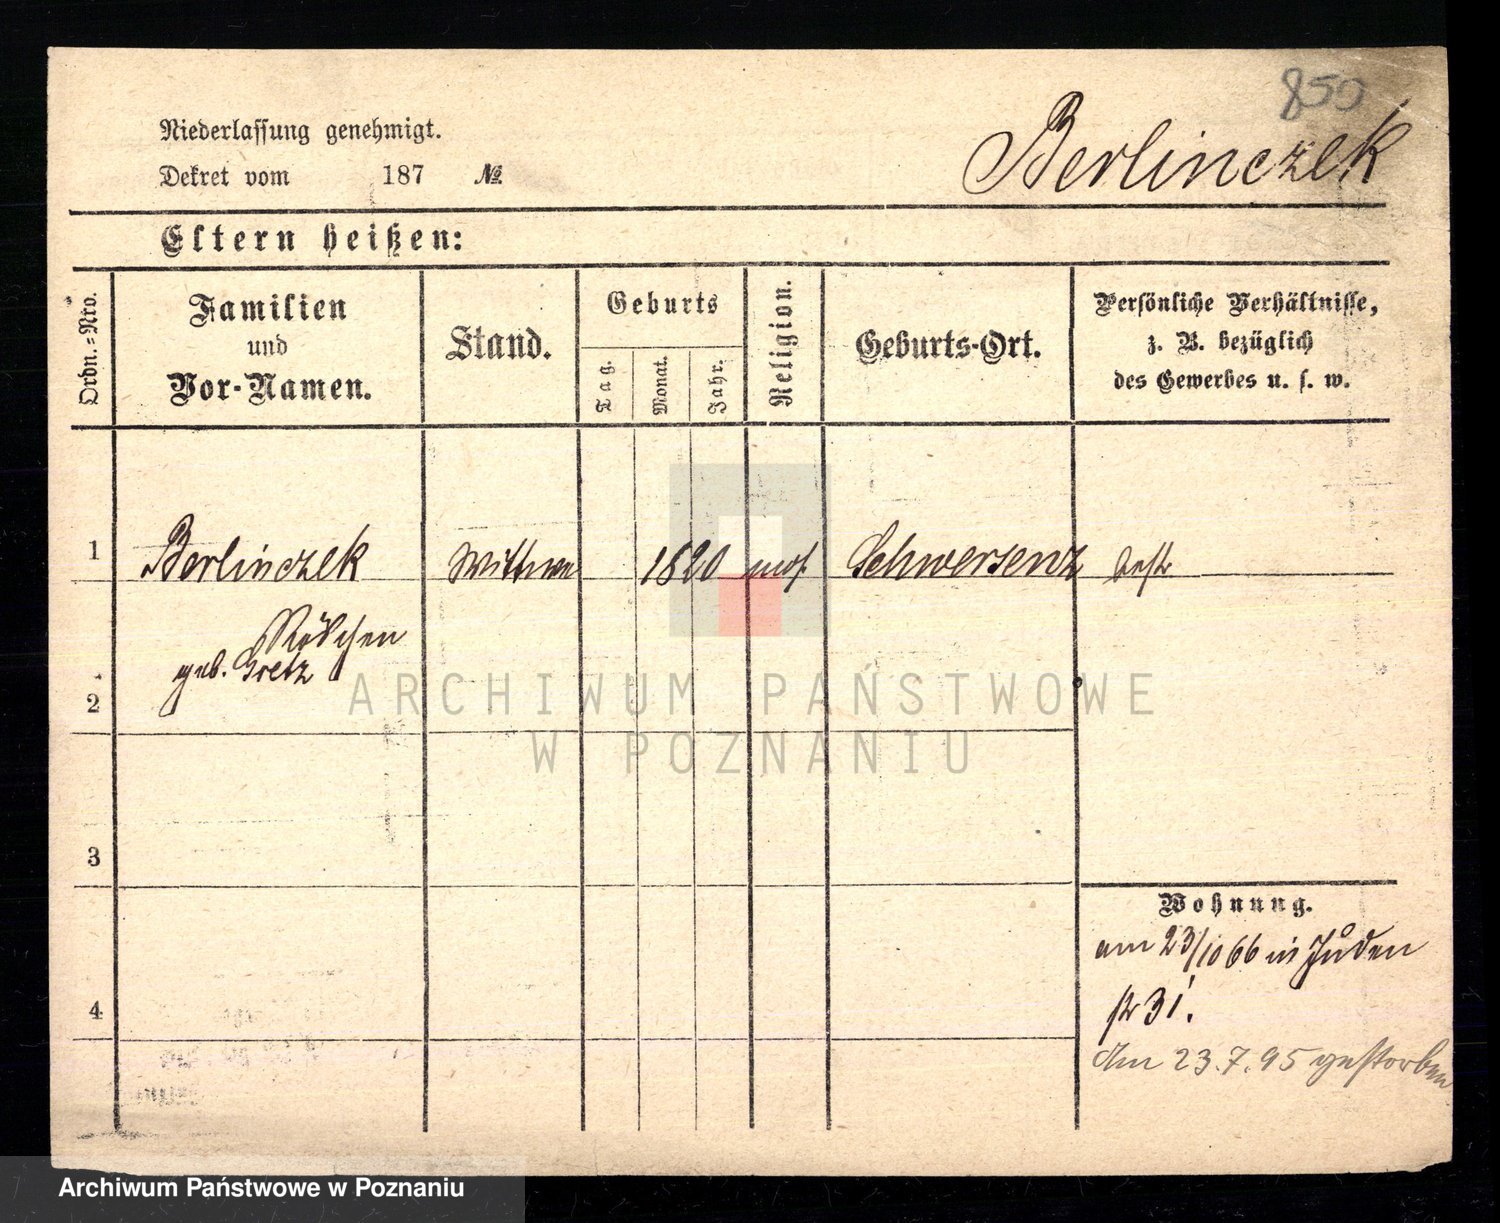 850
Niederlassung genehmigt.
Berlinczek
Dekret vom 187 №
Eltern heißen:
Ordn.-Nro.
Familien
und
Vor-Namen.
Stand.
Geburts
Tag.
Monat.
Jahr.
Religion.
Geburts-Ort.
Persönliche Verhältnisse,
z. B. bezüglich
des Gewerbes u. s. w.
1 Berlinczek Wittwe 1820 mos. Schwersenz
Röschen
geb. Gretz
2
ARCHIWUM PAŃSTWOWE
W POZNANIU
3
Wohnung.
am 23/10 66 in Juden
str 31.
4
Am 23.7.95 gestorben
Archiwum Państwowe w Poznaniu